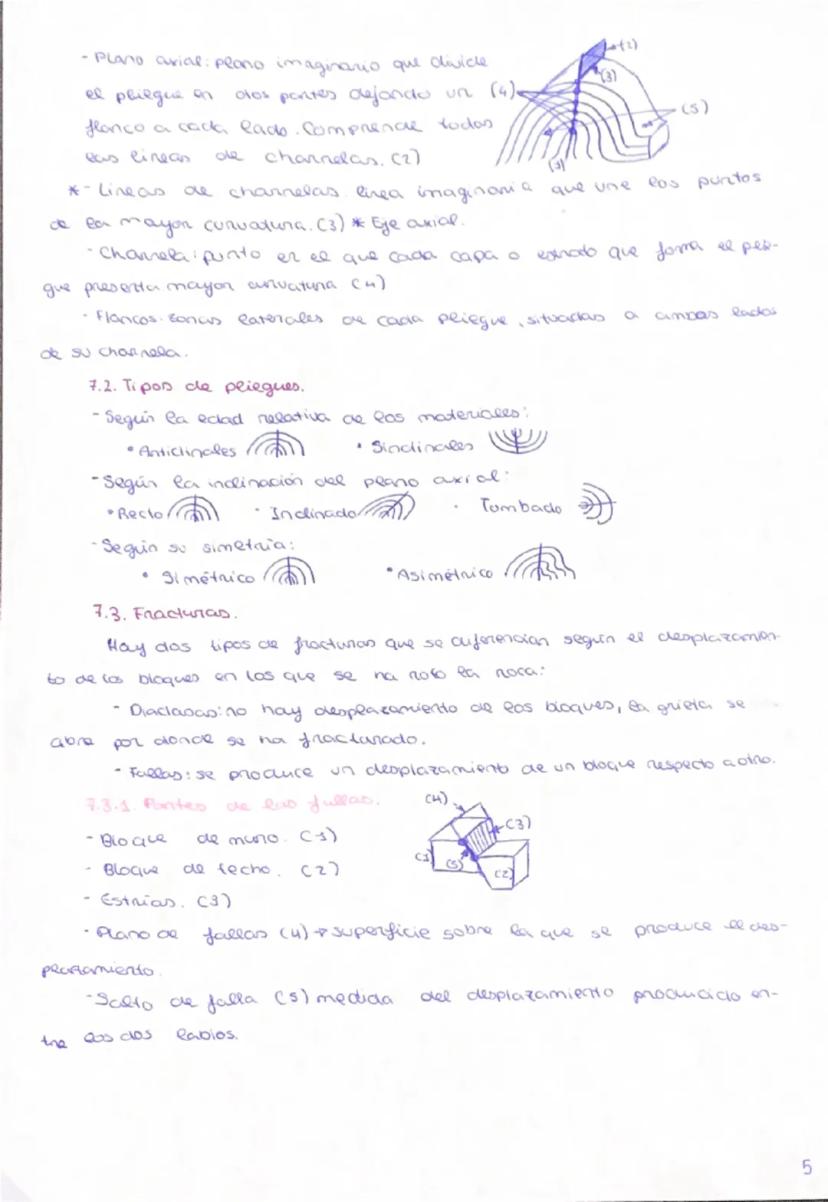 - Plano axial: plano imaginario que divide
el pliegue en dos partes dejando un
flanco a cada lado. Comprende todas
las líneas de charnelas. (2)
(2)
(3)
(4)
(5)
(1)
*- Líneas de charnelas. línea imaginaria que une los puntos
de la mayor curvatura. (3) * Eje axial.
- Charnela: punto en el que cada capa o estrato que forma el plie-
gue presenta mayor curvatura (4)
- Flancos: zonas laterales de cada pliegue, situadas a ambos lados
de su charnela.
7.2. Tipos de pliegues.
- Según la edad relativa de los materiales:
• Anticlinales • Sinclinales
- Según la inclinación del plano axial:
• Recto • Inclinado • Tumbado
- Según su simetría:
• Simétrico • Asimétrico
7.3. Fracturas.
Hay dos tipos de fracturas que se diferencian según el desplazamien-
to de los bloques en los que se ha roto la roca:
- Diaclasas: no hay desplazamiento de los bloques, la grieta se
abre por donde se ha fracturado.
- Fallas: se produce un desplazamiento de un bloque respecto a otro.
7.3.1. Partes de las fallas.
- Bloque de muro. (1)
- Bloque de techo. (2)
- Estrías. (3)
(4)
(3)
(1)
(5)
(2)
- Plano de fallas (4) → superficie sobre la que se produce el des-
plazamiento.
- Salto de falla (5) medida del desplazamiento producido en-
tre los dos labios.
5